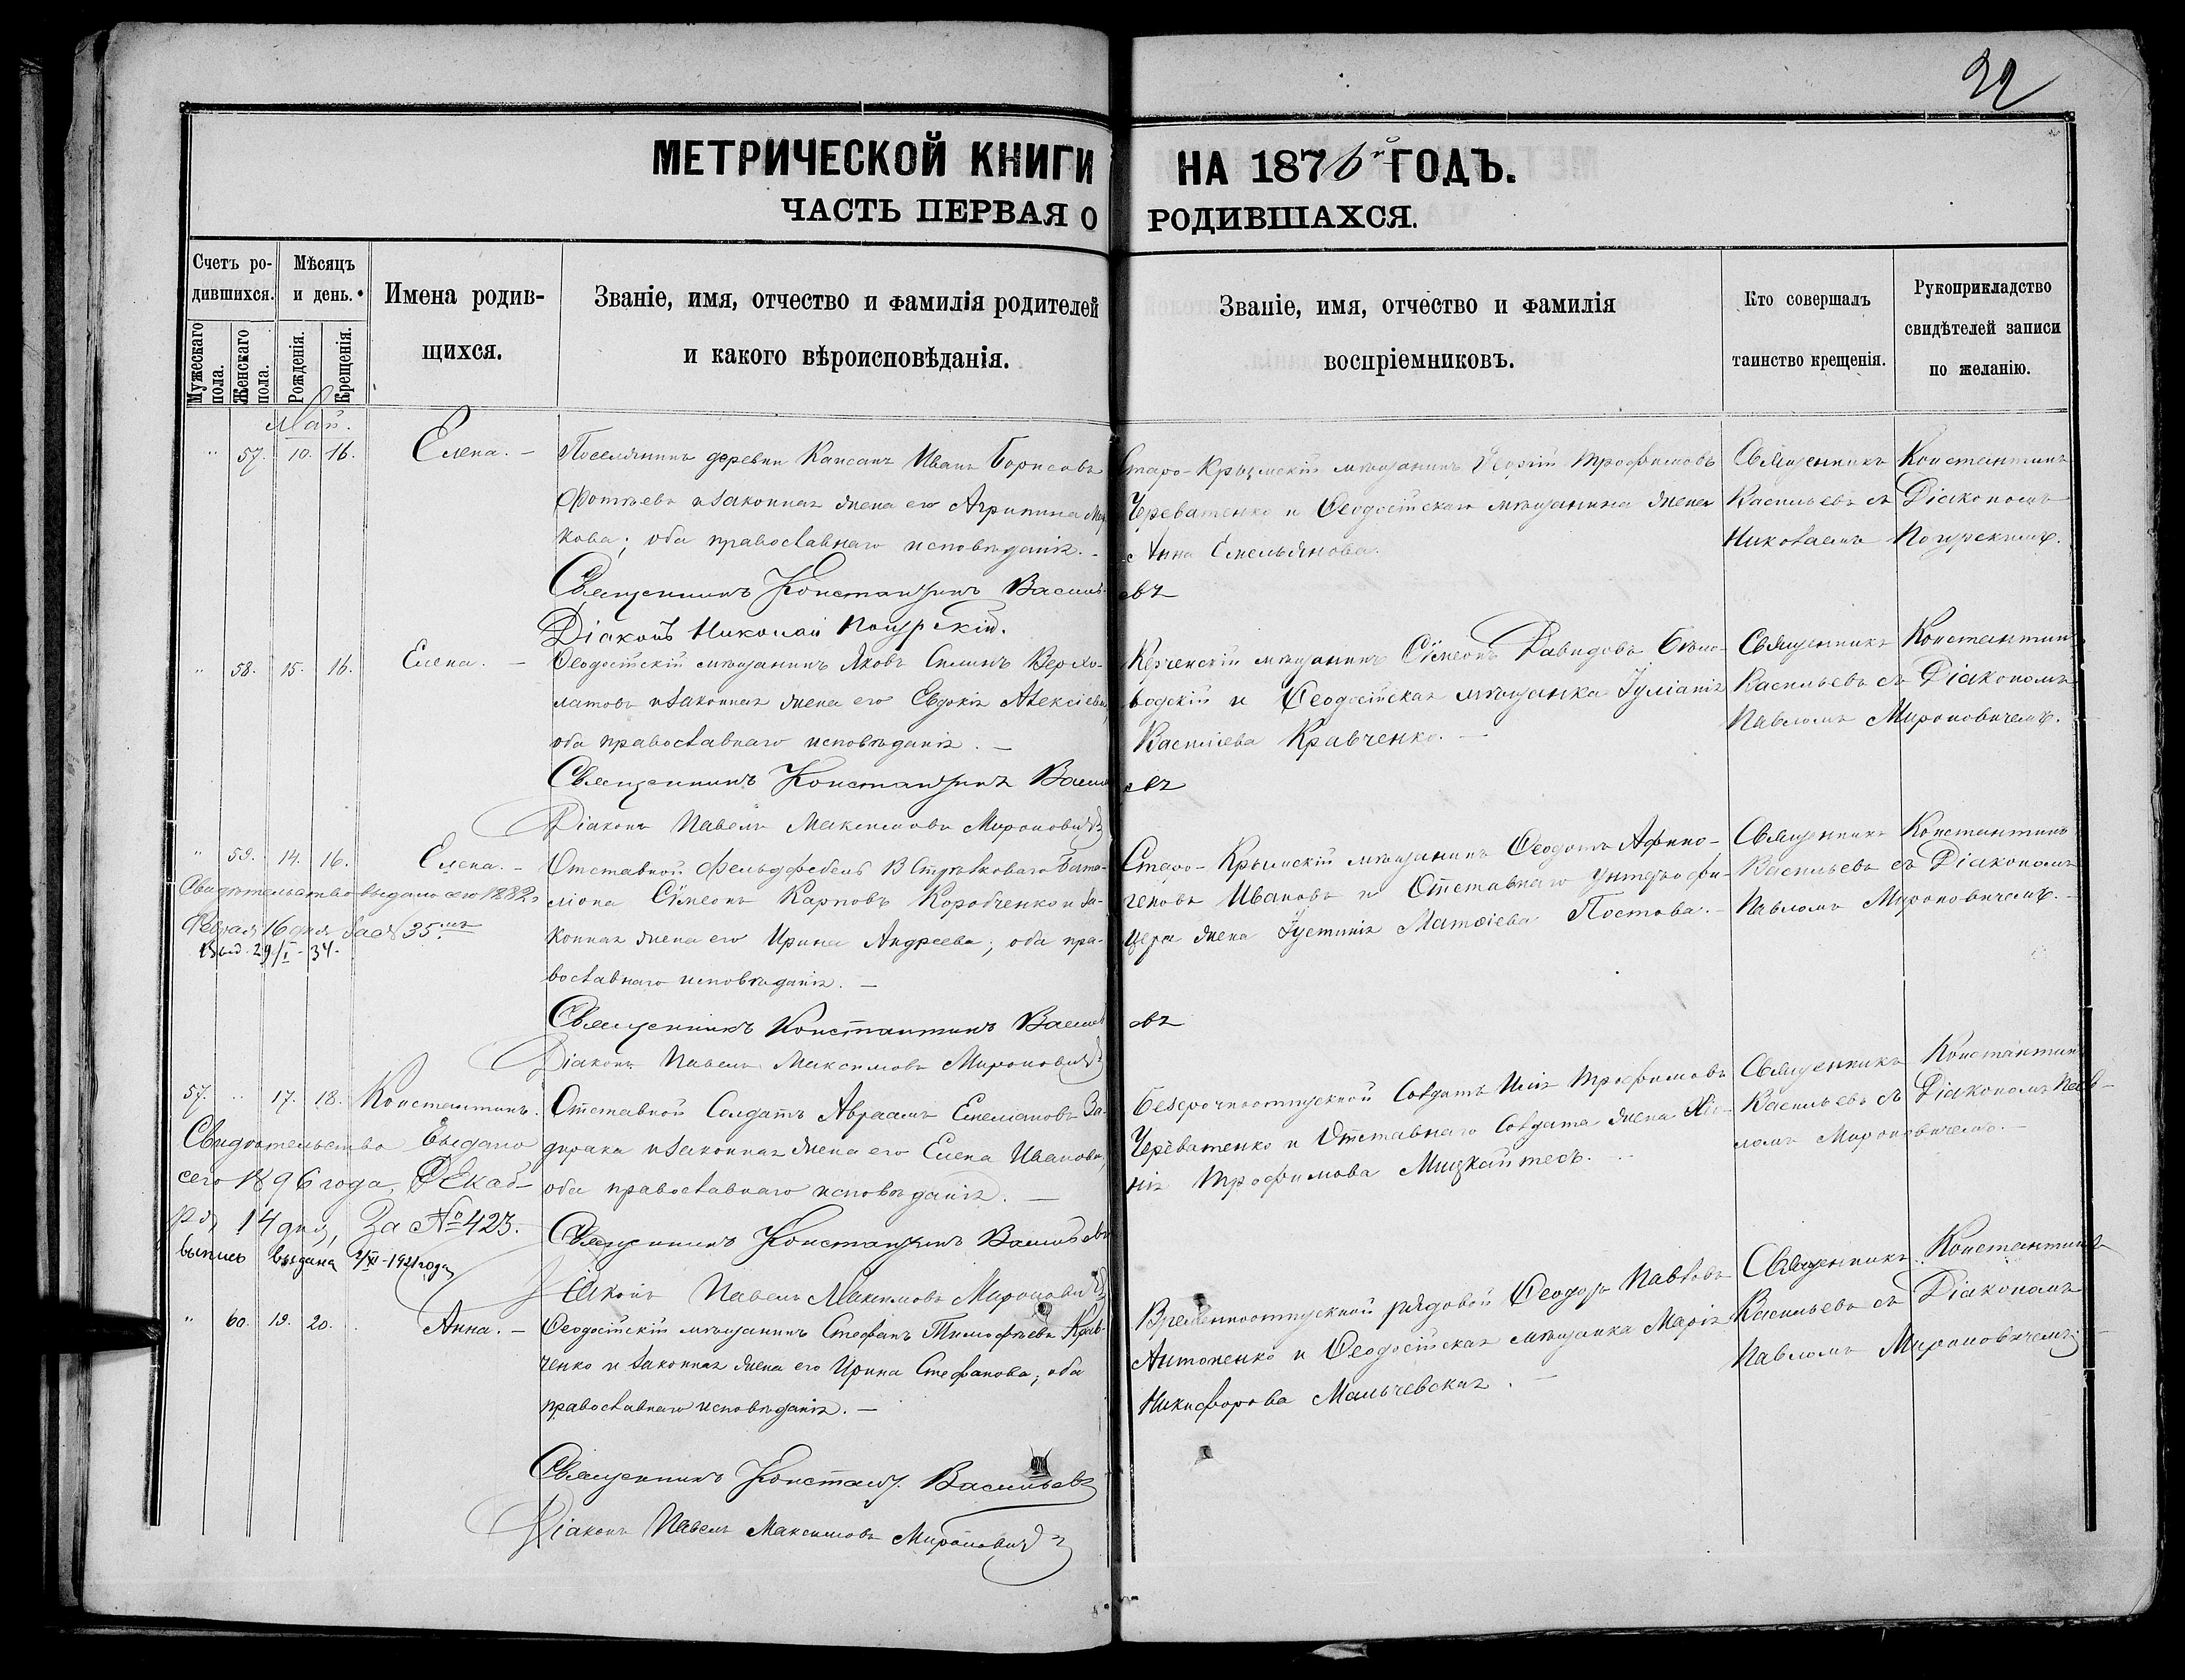 32
МЕТРИЧЕСКОЙ КНИГИ НА 1876й ГОДЪ.
ЧАСТЬ ПЕРВАЯ О РОДИВШАХСЯ.
Счетъ родившихся.
Мужескаго пола.
Женскаго пола.
Мѣсяцъ и день.
Рожденія.
Крещенія.
Имена родив-
щихся.
Званіе, имя, отчество и фамилія родителей
и какого вѣроисповѣданія.
Званіе, имя, отчество и фамилія
воспріемниковъ.
Кто совершалъ
таинство крещенія.
Рукоприкладство
свидѣтелей записи
по желанію.
Май.
" 57. 10. 16. Елена. –
Поселянинъ деревни Капсанъ Иванъ Борисовъ
Фотѣевъ и законная жена его Агрипина Мар-
кова; оба православнаго исповѣданія. –
Священникъ Константинъ Васильевъ
Діаконъ Николай Погурскій.
Старо-Крымскій мѣщанинъ Георгій Трофимовъ
Череватенко и Ѳеодосійскаго мѣщанина жена
Анна Емельянова.
Священникъ Константинъ
Васильевъ съ Діакономъ
Николаемъ Погурскимъ.
" 58. 15. 16. Елена. –
Ѳеодосійскій мѣщанинъ Яковъ Силинъ Верхо-
латовъ и законная жена его Евдокія Алексіева,
оба православнаго исповѣданія. –
Священникъ Константинъ Васильевъ
Діаконъ Павелъ Максимовъ Мироновичъ
Керченскій мѣщанинъ Сѵмеонъ Давидовъ Бѣло-
водскій и Ѳеодосійская мѣщанка Іуліанія
Василіева Кравченко. –
Священникъ Константинъ
Васильевъ съ Діакономъ
Павломъ Мироновичемъ.
" 59. 14. 16. Елена. –
Свидѣтельство выдано сего 1882 г.
Февраля 16 дня за № 35мъ
Выд. 29/I - 34.
Отставной Фельдфебель В Стрѣлковаго Бата-
ліона Сѵмеонъ Карповъ Коробченко и за-
конная жена его Ирина Андреева; оба пра-
вославнаго исповѣданія. –
Священникъ Константинъ Васильевъ
Діаконъ Павелъ Максимовъ Мироновичъ
Старо-Крымскій мѣщанинъ Ѳеодотъ Афино-
геновъ Ивановъ и Отставнаго Унтеръ офи-
цера жена Іустинія Матѳіева Постова. –
Священникъ Константинъ
Васильевъ съ Діакономъ
Павломъ Мироновичемъ. –
57. " 17. 18. Константинъ.
Свидѣтельство Выдано
сего 1896 года, Декаб-
ря 14 дня, За № 423.
выпись выдана 2/XI - 1921 года
Отставной Солдатъ Авраамъ Емеліановъ За-
дирака и законная жена его Елена Иванова,
оба православнаго исповѣданія. –
Священникъ Константинъ Васильевъ
Діаконъ Павелъ Максимовъ Мироновичъ
Безсрочноотпускной Солдатъ Илія Трофимовъ
Череватенко и Отставнаго Солдата жена Хіо-
нія Трофимова Мицкайтесъ.
Священникъ Константинъ
Васильевъ съ Діакономъ Пав-
ломъ Мироновичемъ. –
" 60. 19. 20. Анна. –
Ѳеодосійскій мѣщанинъ Стефанъ Тимофѣевъ Крав-
ченко и законная жена его Ирина Стефанова, оба
православнаго исповѣданія. –
Священникъ Констант. Васильевъ
Діаконъ Павелъ Максимовъ Мироновичъ
Временноотпускной рядовой Ѳеодоръ Павловъ
Антоненко и Ѳеодосійская мѣщанка Марія
Никифорова Мальчевская. –
Священникъ Константинъ
Васильевъ съ Діакономъ
Павломъ Мироновичемъ. –